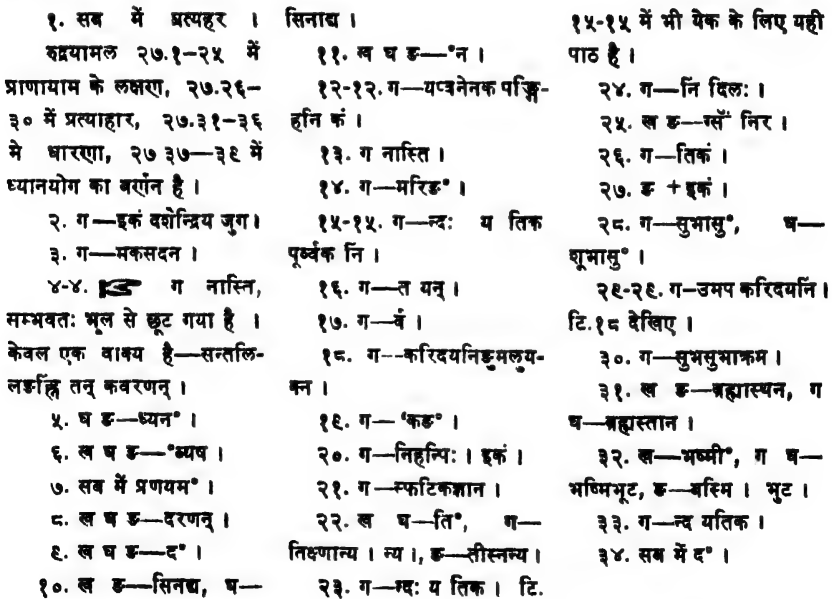 १. सब में प्रत्यहर ।
रुद्रयामल २७.१–२५ में
प्राणायाम के लक्षण, २७.२६–
३० में प्रत्याहार, २७.३१–३६
मे धारणा, २७ ३७—३९ में
ध्यानयोग का वर्णन है ।
२. ग—इकं दशेन्द्रिय जुग।
३. ग—मकसदन ।
४-४. ग नास्ति,
सम्भवतः भूल से छूट गया है ।
केवल एक वाक्य है—सन्तलि-
तन् कवरणन् ।
५. घ ङ—ध्यन° ।
६. ख घ ङ—°व्यष ।
७. सब में प्रणयम° ।
८. ख घ ङ—दरणन् ।
९. ख घ ङ—द° ।
१०. ख ङ—सिनद्य, घ—
सिनाद्य ।
११. ख घ ङ—°न ।
१२-१२. ग—
हनि कं ।
१३. ग नास्ति ।
१४. ग—मरिङ° ।
१५-१५. ग—न्दः य तिक
पूर्व्वक नि ।
१६. ग—त यन् ।
१७. ग—वं ।
१८. ग--करिदयनिङुमलुय-
क्न ।
१९. ग—'कङ° ।
२०. ग—निहन्पिः । इकं ।
२१. ग—स्फटिकज्ञान ।
२२. ख घ—ति°, ग—
तिक्ष्णान्य । न्य ।, ङ—तीस्नन्य ।
२३. ग—न्दः य तिक । टि.
१५-१५ में भी येक के लिए यही
पाठ है ।
२४. ग—नि दिलः ।
२५. ख ङ—ग्सँ निर ।
२६. ग—तिकं ।
२७. ङ +इकं ।
२८. ग—सुभासु°, घ—
शूभासु° ।
२९-२९. ग–उमप करिदयनि।
टि.१८ देखिए ।
३०. ग—सुभसुभाक्रम ।
३१. ख ङ—ब्रह्मास्थन, ग
घ—ब्रह्मस्तान ।
३२. ख—भष्मी°, ग घ—
भष्मिभूट, ङ—बस्मि । भुट ।
३३. ग—न्द यतिक ।
३४. सब में द° ।